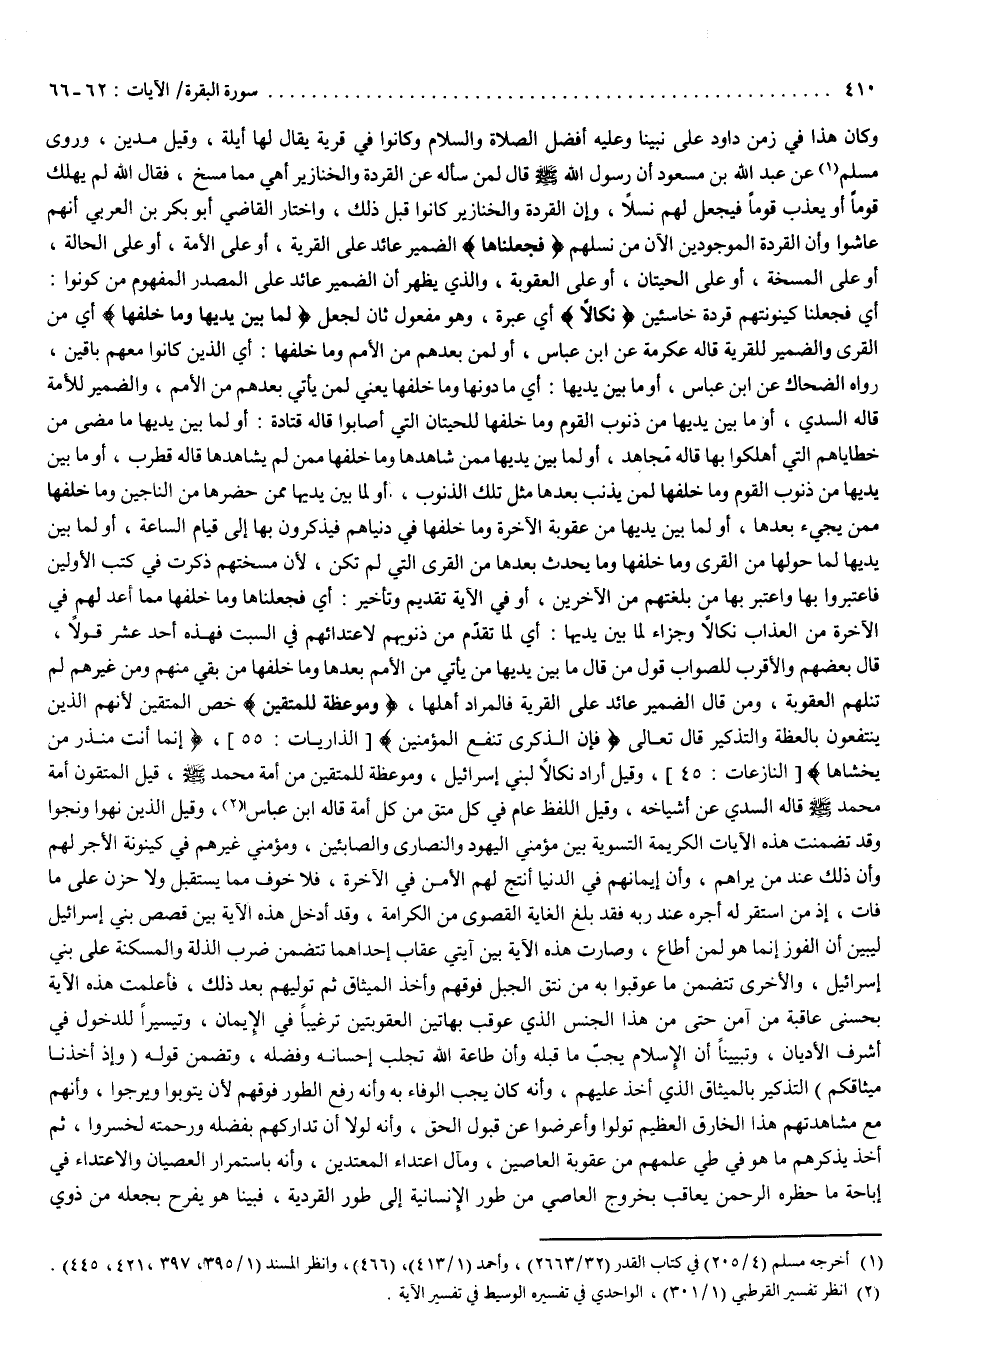 ٤١٠ ................................................ سورة البقرة/ الآيات : ٦٢ - ٦٦
وكان هذا في زمن داود على نبينا وعليه أفضل الصلاة والسلام وكانوا في قرية يقال لها أيلة ، وقيل مـدين ، وروى
مسلم(١) عن عبد الله بن مسعود أن رسول الله ﷺ قال لمن سأله عن القردة والخنازير أهي مما مسخ ، فقال الله لم يهلك
قوماً أو يعذب قوماً فيجعل لهم نسلًا ، وإن القردة والخنازير كانوا قبل ذلك ، واختار القاضي أبو بكر بن العربي أنهم
عاشوا وأن القردة الموجودين الآن من نسلهم ﴿ فجعلناها ﴾ الضمير عائد على القرية ، أو على الأمة ، أو على الحالة ،
أو على المسخة ، أو على الحيتان ، أو على العقوبة ، والذي يظهر أن الضمير عائد على المصدر المفهوم من كونوا :
أي فجعلنا كينونتهم قردة خاسئين ﴿ نكالًا ﴾ أي عبرة ، وهو مفعول ثان لجعل ﴿ لما بين يديها وما خلفها ﴾ أي من
القرى والضمير للقرية قاله عكرمة عن ابن عباس ، أو لمن بعدهم من الأمم وما خلفها : أي الذين كانوا معهم باقين ،
رواه الضحاك عن ابن عباس ، أو ما بين يديها : أي ما دونها وما خلفها يعني لمن يأتي بعدهم من الأمم ، والضمير للأمة
قاله السدي ، أو ما بين يديها من ذنوب القوم وما خلفها للحيتان التي أصابوا قاله قتادة : أو لما بين يديها ما مضى من
خطاياهم التي أهلكوا بها قاله مجاهد ، أو لما بين يديها ممن شاهدها وما خلفها ممن لم يشاهدها قاله قطرب ، أو ما بين
يديها من ذنوب القوم وما خلفها لمن يذنب بعدها مثل تلك الذنوب ، أو لما بين يديها ممن حضرها من الناجين وما خلفها
ممن يجيء بعدها ، أو لما بين يديها من عقوبة الآخرة وما خلفها في دنياهم فيذكرون بها إلى قيام الساعة ، أو لما بين
يديها لما حولها من القرى وما خلفها وما يحدث بعدها من القرى التي لم تكن ، لأن مسختهم ذكرت في كتب الأولين
فاعتبروا بها واعتبر بها من بلغتهم من الآخرين ، أو في الآية تقديم وتأخير : أي فجعلناها وما خلفها مما أعد لهم في
الآخرة من العذاب نكالًا وجزاء لما بين يديها : أي لما تقدّم من ذنوبهم لاعتدائهم في السبت فهـذه أحد عشر قـولًا ،
قال بعضهم والأقرب للصواب قول من قال ما بين يديها من يأتي من الأمم بعدها وما خلفها من بقي منهم ومن غيرهم لم
تنلهم العقوبة ، ومن قال الضمير عائد على القرية فالمراد أهلها ، ﴿ وموعظة للمتقين ﴾ خص المتقين لأنهم الذين
ينتفعون بالعظة والتذكير قال تعـالى ﴿ فإن الـذكرى تنفـع المؤمنين ﴾ [ الذاريـات : ٥٥ ] ، ﴿ إنما أنت منـذر من
يخشاها ﴾ [ النازعات : ٤٥ ] ، وقيل أراد نكالًا لبني إسرائيل ، وموعظة للمتقين من أمة محمد ﷺ ، قيل المتقون أمة
محمد ﷺ قاله السدي عن أشياخه ، وقيل اللفظ عام في كل متق من كل أمة قاله ابن عباس(٢) ، وقيل الذين نهوا ونجوا
وقد تضمنت هذه الآيات الكريمة التسوية بين مؤمني اليهود والنصارى والصابئين ، ومؤمني غيرهم في كينونة الأجر لهم
وأن ذلك عند من يراهم ، وأن إيمانهم في الدنيا أنتج لهم الأمـن في الآخرة ، فلا خوف مما يستقبل ولا حزن على ما
فات ، إذ من استقر له أجره عند ربه فقد بلغ الغاية القصوى من الكرامة ، وقد أدخل هذه الآية بين قصص بني إسرائيل
ليبين أن الفوز إنما هو لمن أطاع ، وصارت هذه الآية بين آيتي عقاب إحداهما تتضمن ضرب الذلة والمسكنة على بني
إسرائيل ، والأخرى تتضمن ما عوقبوا به من نتق الجبل فوقهم وأخذ الميثاق ثم توليهم بعد ذلك ، فأعلمت هذه الآية
بحسنى عاقبة من آمن حتى من هذا الجنس الذي عوقب بهاتين العقوبتين ترغيباً في الإيمان ، وتيسيراً للدخول في
أشرف الأديان ، وتبييناً أن الإسلام يجبّ ما قبله وأن طاعة الله تجلب إحسانـه وفضله ، وتضمن قولـه ( وإذ أخذنـا
ميثاقكم ) التذكير بالميثاق الذي أخذ عليهم ، وأنه كان يجب الوفاء به وأنه رفع الطور فوقهم لأن يتوبوا ويرجوا ، وأنهم
مع مشاهدتهم هذا الخارق العظيم تولوا وأعرضوا عن قبول الحق ، وأنه لولا أن تداركهم بفضله ورحمته لخسروا ، ثم
أخذ يذكرهم ما هو في طي علمهم من عقوبة العاصين ، ومآل اعتداء المعتدين ، وأنه باستمرار العصيان والاعتداء في
إباحة ما حظره الرحمن يعاقب بخروج العاصي من طور الإنسانية إلى طور القردية ، فبينا هو يفرح بجعله من ذوي
(١) أخرجه مسلم (٢٠٥/٤) في كتاب القدر (٢٦٦٣/٣٢) ، وأحمد (٤١٣/١)، (٤٦٦) ، وانظر المسند (٣٩٥/١، ٣٩٧ ،٤٢١، ٤٤٥) .
(٢) انظر تفسير القرطبي (٣٠١/١) ، الواحدي في تفسيره الوسيط في تفسير الآية .